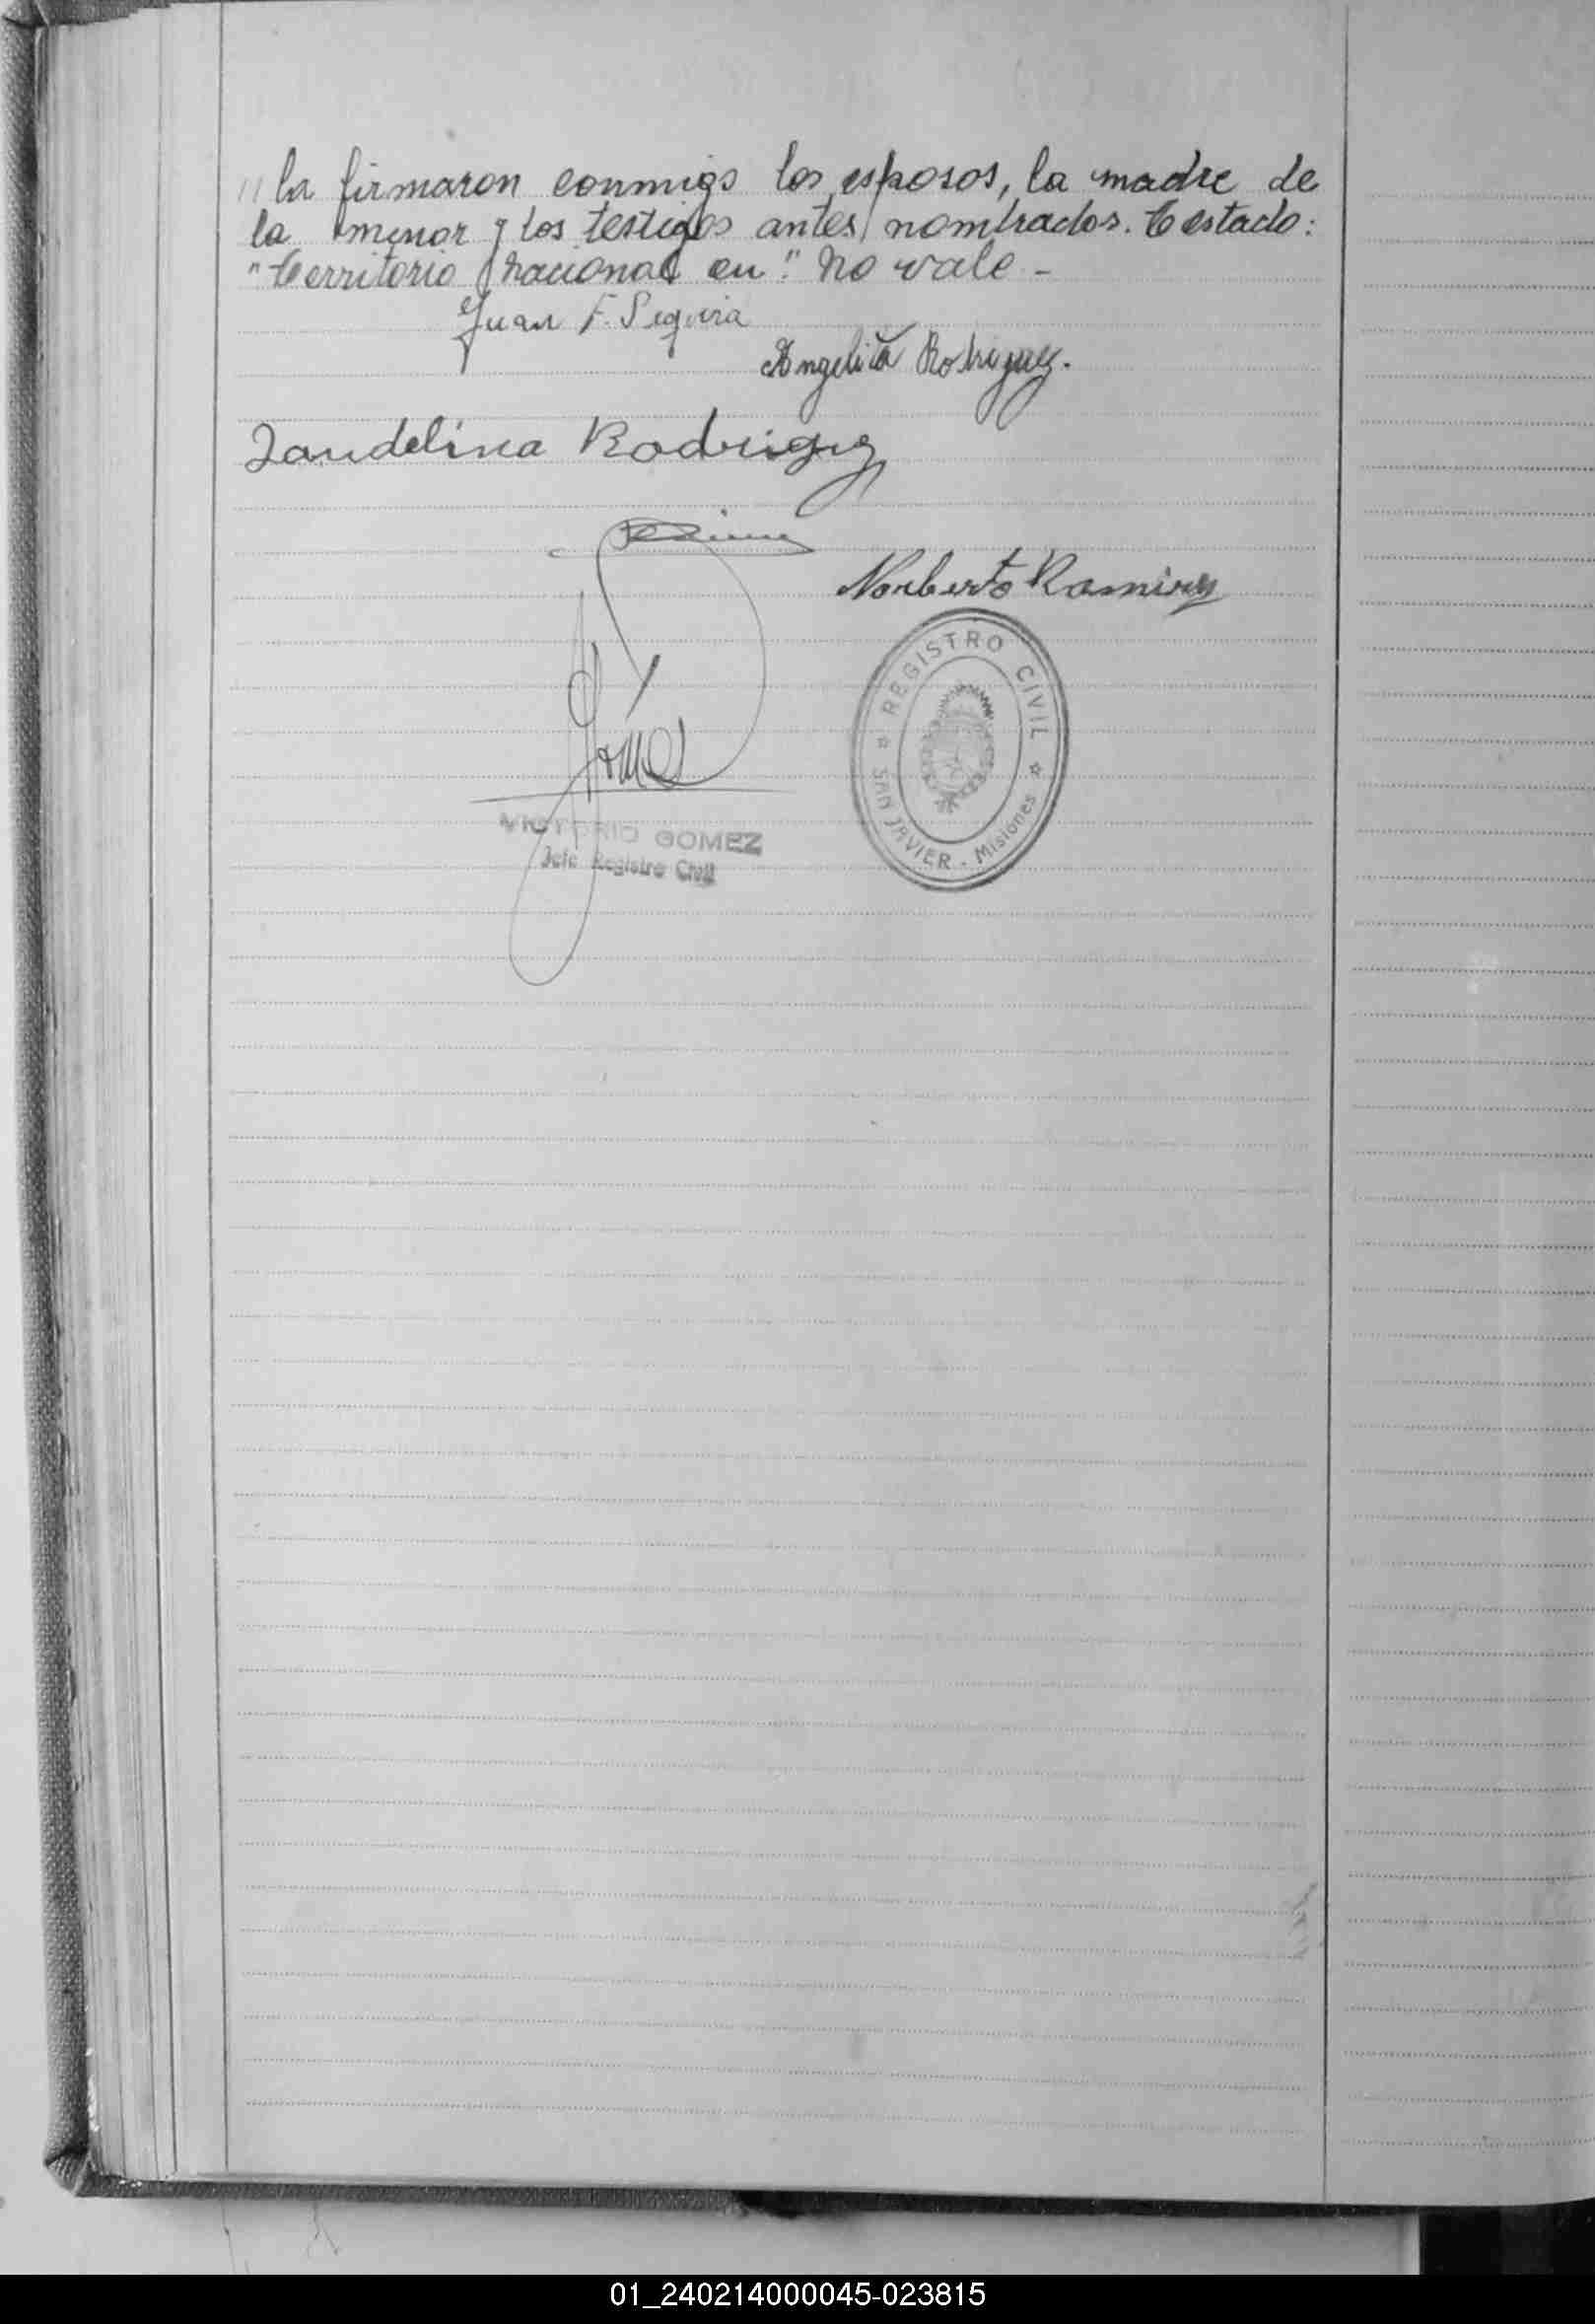 // la firmaron conmigo los esposos, la madre de
la menor y los testigos antes nombrados. Testado:
"Territorio nacional en". No vale -
Juan F. Sequira
Angelita Rodriguez.
Jandelina Rodriguez
Norberto Ramirez
REGISTRO CIVIL
SAN JAVIER - Misiones
Gomez
VICTORIO GOMEZ
Jefe Registro Civil
01_240214000045-023815